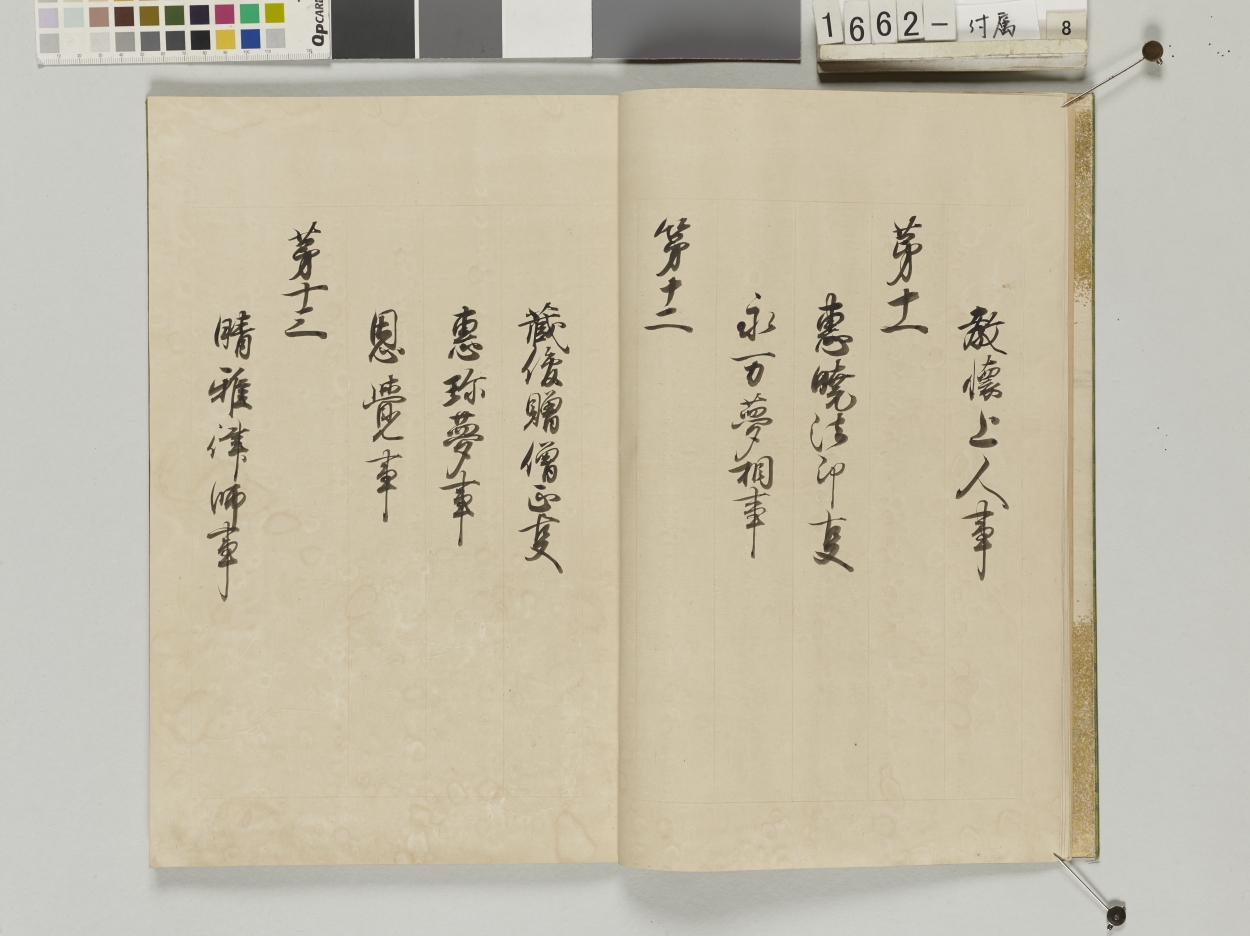 QPCARD
1662-付属 8
教懐上人事
第十一
惠曉法印叓
永万夢相事
第十二
蔵俊贈僧正叓
惠珎夢事
恩覺事
第十三
晴雅律師事